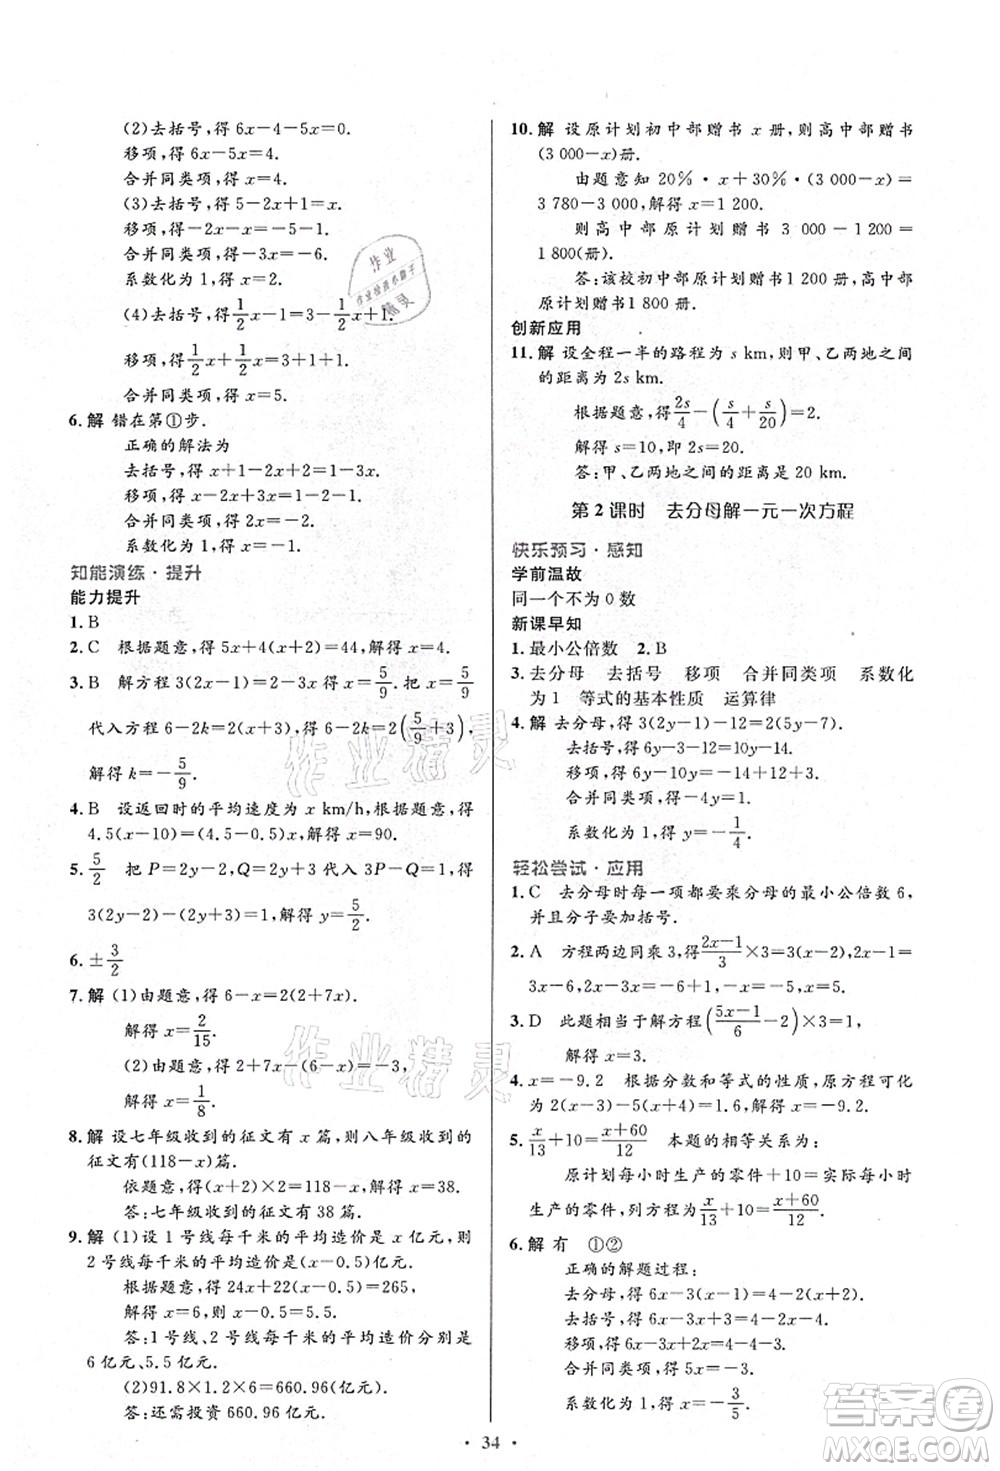 (2)去括号,得 6x-4-5x=0.
移项,得 6x-5x=4.
合并同类项,得 x=4.
(3)去括号,得 5-2x-1=x-2.
移项,得 -2x-x=-5-1.
合并同类项,得 -3x=-6.
系数化为 1,得 x=2.
(4)去括号,得 1/2x-1=3-1/2x+1.
移项,得 1/2x+1/2x=3+1+1.
合并同类项,得 x=5.
6.解 错在第①步.
正确的解法为
去括号,得 x+1-2x+2=1-3x.
移项,得 x-2x+3x=1-1-2.
合并同类项,得 2x=-2.
系数化为 1,得 x=-1.
知能演练·提升
能力提升
1. B
2. C 根据题意,得 5x+4(x+2)=44,解得 x=4.
3. B 解方程 3(2x-1)=2-3x,得 x=5/9.把 x=5/9
代入方程 6-2k=2(x+3),得 6-2k=2(5/9+3),
解得 k=-5/9.
4. B 设返回时的平均速度为 x km/h,根据题意,得
4.5(x-10)=(4.5-0.5)x,解得 x=90.
5. 5/2 把 P=2y-2,Q=2y+3 代入 3P-Q=1,得
3(2y-2)-(2y+3)=1,解得 y=5/2.
6. ±3/2
7.解 (1)由题意,得 6-x=2(2+7x),
解得 x=2/15.
(2)由题意,得 2+7x-(6-x)=-3,
解得 x=1/8.
8.解 设七年级收到的征文有 x 篇,则八年级收到的
征文有(118-x)篇.
依题意,得(x+2)×2=118-x,解得 x=38.
答:七年级收到的征文有 38 篇.
9.解 (1)设 1 号线每千米的平均造价是 x 亿元,则
2 号线每千米的平均造价是(x-0.5)亿元.
根据题意,得 24x+22(x-0.5)=265,
解得 x=6,则 x-0.5=5.5.
答:1 号线、2 号线每千米的平均造价分别是
6 亿元、5.5 亿元.
(2)91.8×1.2×6=660.96(亿元).
答:还需投资 660.96 亿元.
10.解 设原计划初中部赠书 x 册,则高中部赠书
(3 000-x)册.
由题意知 20%·x+30%·(3 000-x)=
3 780-3 000,解得 x=1 200.
则高中部原计划赠书 3 000-1 200=1 800
(册).
答:该校初中部原计划赠书 1 200 册,高中部
原计划赠书 1 800 册.
创新应用
11.解 设全程一半的路程为 s km,则甲、乙两地之间
的距离为 2s km.
根据题意,得 2s/4-(s/4+s/20)=2.
解得 s=10,即 2s=20.
答:甲、乙两地之间的距离是 20 km.
第 2 课时 去分母解一元一次方程
快乐预习·感知
学前温故
同一个不为 0 数
新课早知
1. 最小公倍数 2. B
3. 去分母 去括号 移项 合并同类项 系数化
为 1 等式的基本性质 运算律
4.解 去分母,得 3(2y-1)-12=2(5y-7).
去括号,得 6y-3-12=10y-14.
移项,得 6y-10y=3+12-14.
合并同类项,得 -4y=1.
系数化为 1,得 y=-1/4.
轻松尝试·应用
1. C 去分母时每一项都要乘分母的最小公倍数 6,
并且分子要加括号.
2. A 方程两边同乘 3,得 (2x-1)/3×3=3(x-2)=
3x-6,2x-3x=-6+1,-x=-5,x=5.
3. D 此题相当于解方程((5x-1)/6-2)×3=2x,
解得 x=3.
4. x=-9.2 根据分数和等式的性质,原方程可化
为 2(x-3)-5(x+4)=1.6,解得 x=-9.2.
5. x/13+10=(x+60)/12 本题的相等关系为:
原计划每小时生产的零件+10=实际每小时
生产的零件,列方程为 x/13+10=(x+60)/12.
6.解 有 ①②
正确的解题过程:
去分母,得 6x-3(x-1)=4-2(x+2).
去括号,得 6x-3x+3=4-2x-4.
移项,得 6x-3x+2x=4-4-3.
合并同类项,得 5x=-3.
系数化为 1,得 x=-3/5.
· 34 ·
作业精灵
作业精灵
作业
精灵
答案圈
MXQE.COM